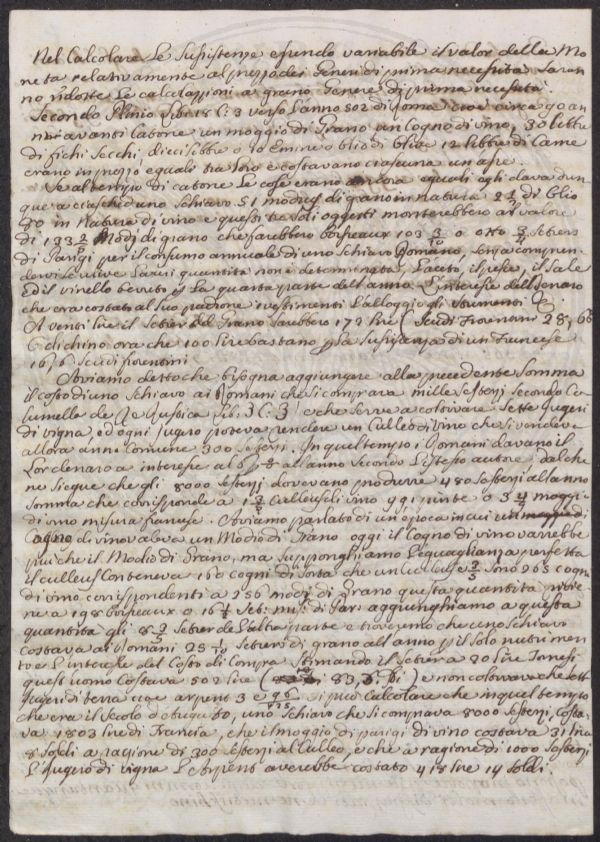 Nel Calcolare le Susistenze essendo variabile il valor della Mo
neta relativamente al prezzo dei Generi di prima necessità saran
no ridotte le calcolazioni a grano Genere di prima necessità.
Secondo Plinio Lib: 18 C: 3 verso l'anno 502 di Roma cioè circa 90 an
ni avanti Catone un moggio di Grano un Cogno di vino, 30 libbre
di fichi secchi, dieci libbre o 10 Emine olio di Olive 12 libbre di Carne
erano in prezzo eguali tra loro e costavano ciascuna un asse.
Se al tempo di Catone le cose erano ancora eguali agli dava dun
que a ciascheduno Schiavo 51 modius di grano in natura 2 di Olio
80 in Natura di vino e questi tre soli oggetti monterebbero al valore
di 133 Modj di grano che farebbero boisseaux 103 o otto Setiers
di Parigi per il consumo annuale di uno Schiavo Romano, senza compren
dervi le ulive la cui quantità non è determinata, l'aceto, il pesce, il sale
ed il vinello bevuto p la quarta parte dell'anno. L'interesse dell denaro
che era costato al suo padrone i vestimenti l'alloggio gli strumenti
A venti lire il Setier del Grano sarebbero 172 lire (Scudi Fiorentini 28,66
E dichino ora che 100 lire bastano p la susistenza di un Francese
16,6 Scudi fiorentini
Abiamo detto che bisogna aggiungere alla precedente Somma
il costo di uno Schiavo ai Romani che si comprava mille Sesterzj secondo Co
lumella de Re Rustica Lib: 3 C: 3 e che serve a coltivare Sette Jugeri
di vigna, ed ogni jugero poteva rendere un Culleo di vino che si vendeva
allora anno Comune 300 Sesterzj. In quel tempo i Romani davano il
Lor denaro a interesse al 6 p all'anno Secondo l'istesso autore dal che
ne siegue che gli 8000 Sesterzj dovevano produrre 480 Sesterzj all'anno
Somma che corrisponde a 1 Culleus di vino
di vino misura francese. Abiamo parlato di un'epoca in cui un
Cogno di vino valeva un Modio di Grano oggi il Cogno di vino varrebbe
più che il Modio di Grano, ma supponghiamo l'eguaglianza perfetta
il culleus Conteneva 160 cogni di sorta che un culleus sono 265 cogni
di vino corrispondenti a 256 modj di Grano questa quantità pervie
ne a 198 boisseaux o 16 Set: mis: di Par: aggiunghiamo a questa
quantità gli 8 Setier de l'altra parte e troveremo che uno Schiavo
costava ai Romani 25 Setiers di grano all'anno p il solo nutrimen
to e l'interesse del Costo di Compra Stimando il Setier a 20 lire Tornesi
quest'uomo costava 502 lire e non coltivava che sett
Jugeri di terra cioè arpent 3 e si può Calcolare che in quel tempo
che era il Secolo d'Augusto, uno Schiavo che si comprava 8000 Sesterzj, costa
va 1803 lire di Francia, che il moggio di parigi di vino costava 31 lira
8 soldi a ragione di 300 Sesterzj al Culleo, e che a ragione di 1000 Sesterzj
l'jugero di vigna l'Arpent averebbe costato 418 lire 14 soldi.